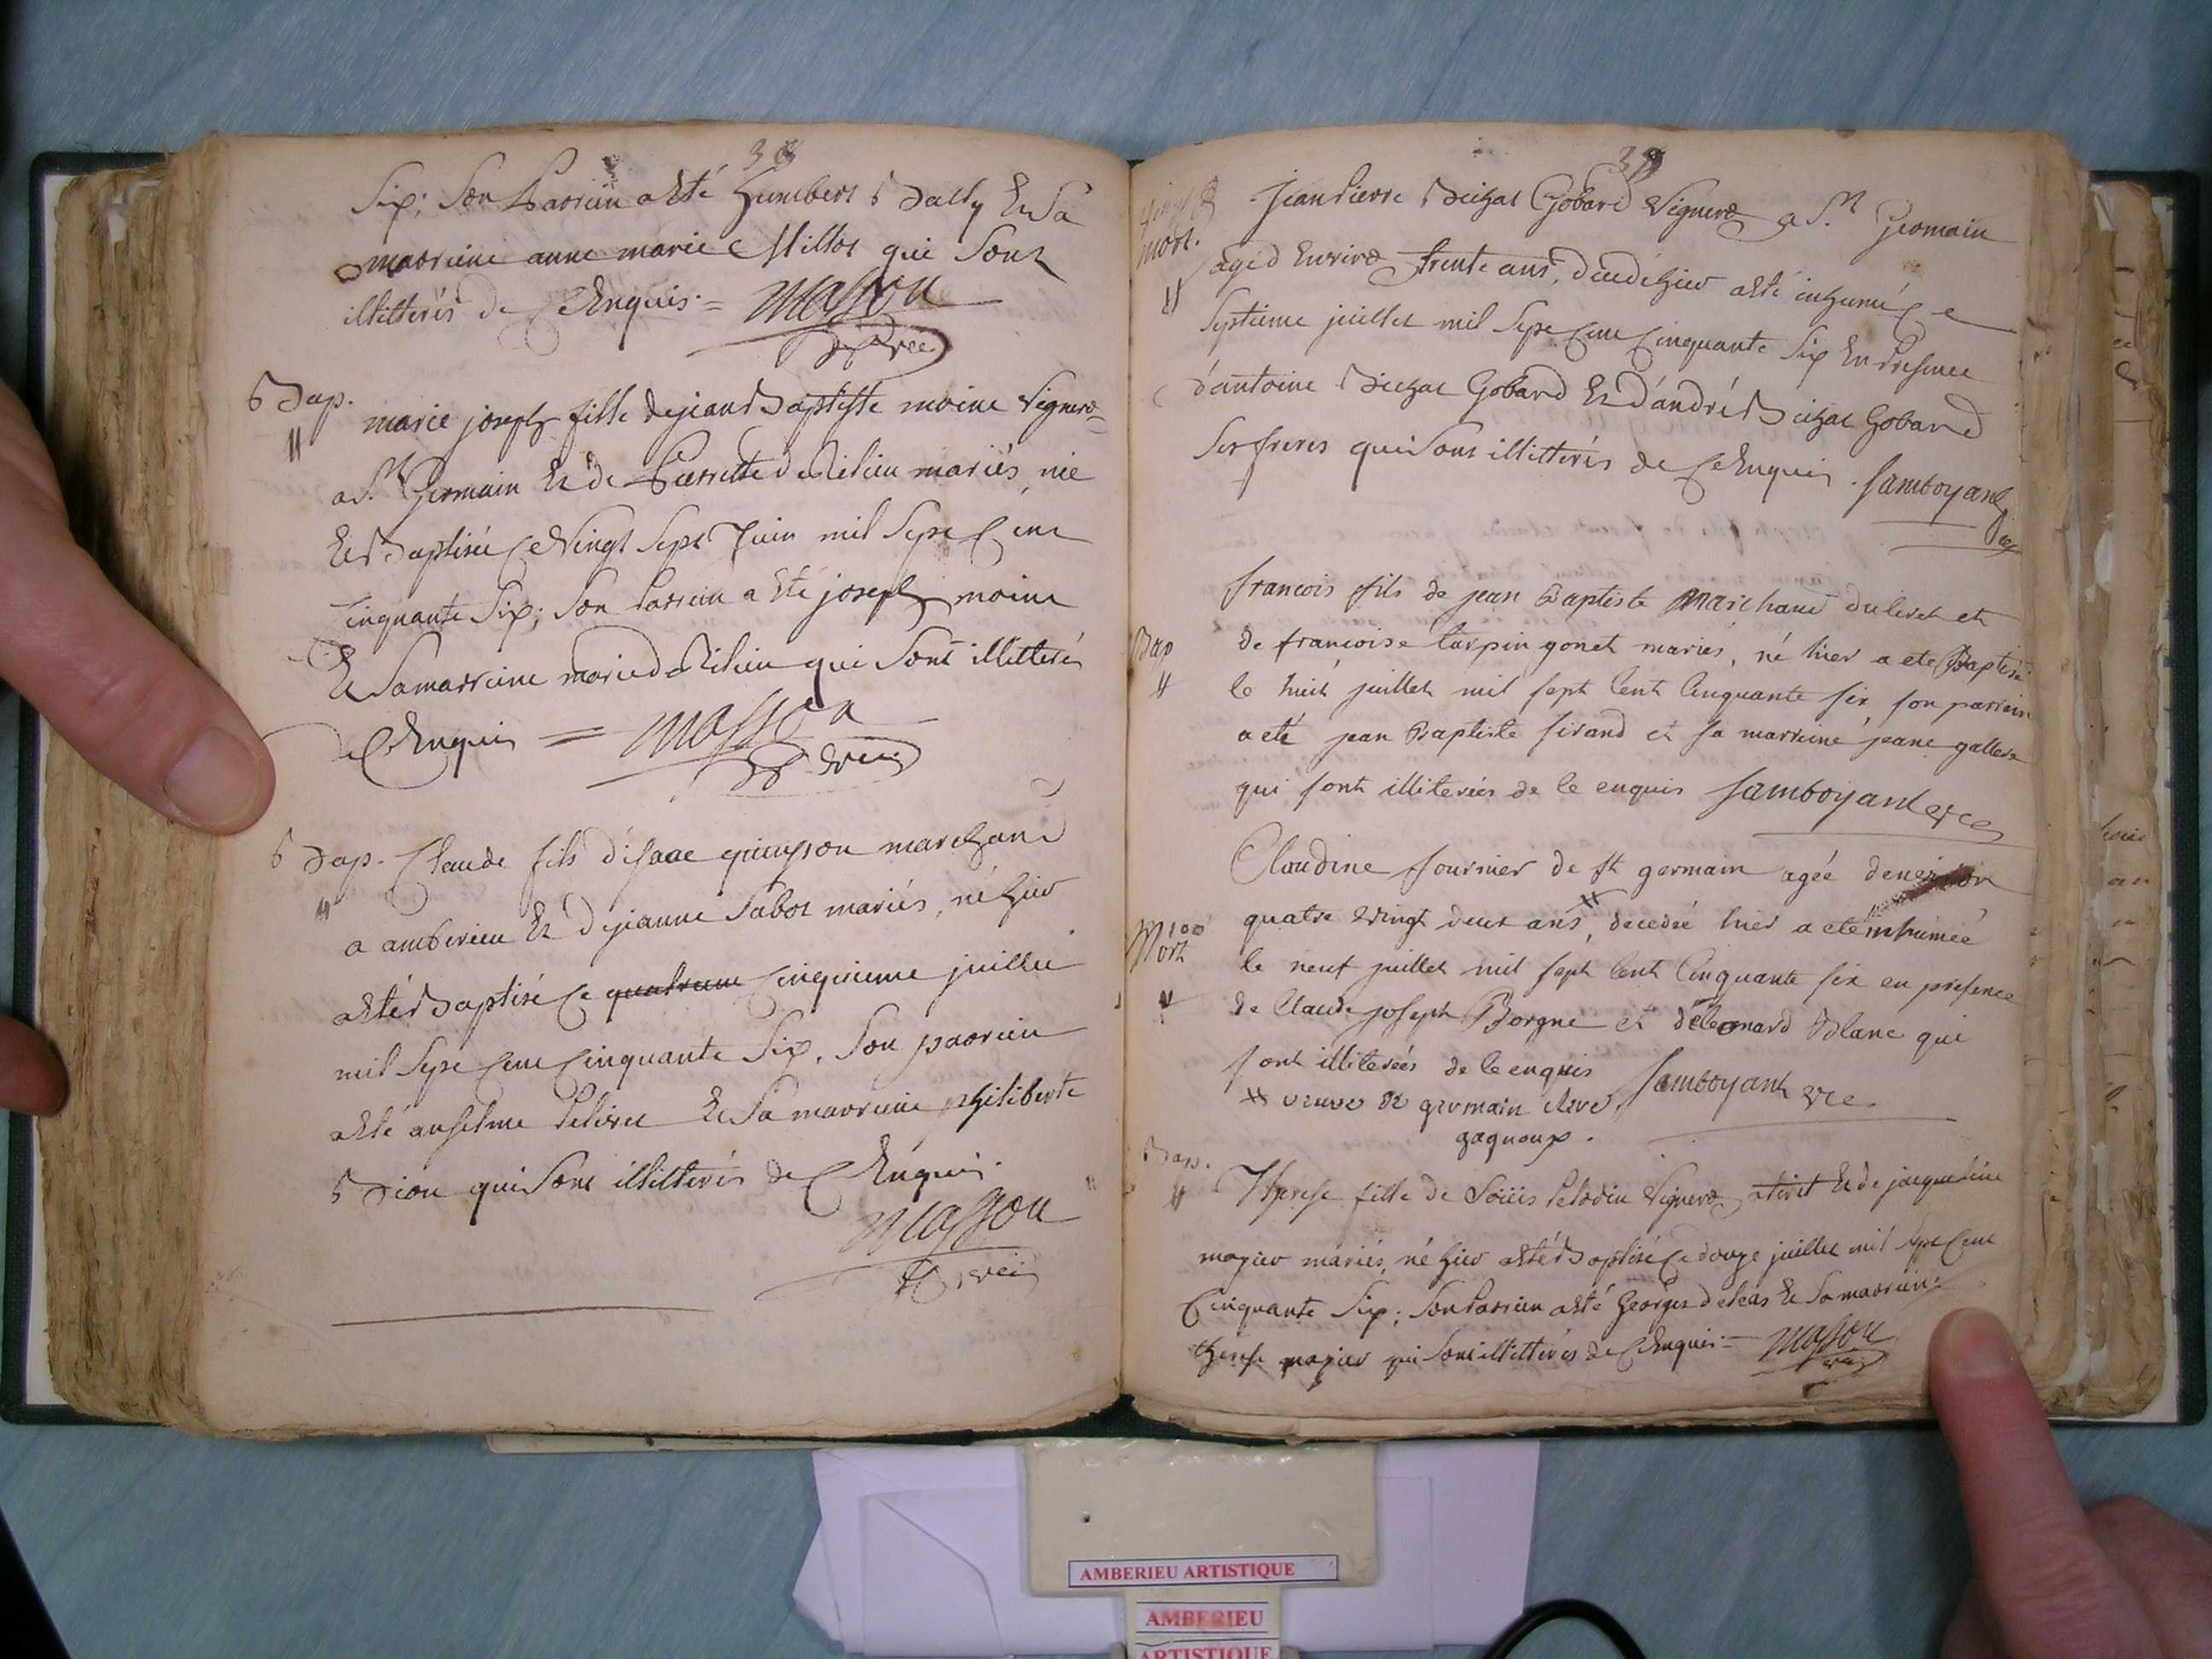 38
Six; Son Parrein a Eté humbert Bally Et Sa
marreine anne marie Millot qui Sont
illitterés de Ce Enquis = Masson
Bap. marie joseph fille de jean Baptiste moine Vigneron
a St Germain Et de Pierrette de Tilieu mariés, née
Et Baptisée Ce Vingt Sept Juin mil Sept Cent
Cinquante Six; Son Parrein a Eté joseph moine
Et Sa marreine marie de Tilieu qui Sont illitterés
de Ce Enquis = Masson
Bap. Claude fils d'isaac quinson marchand
a amberieu Et de jeanne Sabot mariés, né hier
a Eté Baptisé Ce quatrieme Cinquieme juillet
mil Sept Cent Cinquante Six. Son parrein
a Eté anselme Pelivet Et Sa marreine philiberte
Dion qui Sont illitterés de Ce Enquis.
Masson
39
mort. Jean Pierre Bichat Gobard Vigneron a St Germain
agé d'Environ trente ans, decedé hier a Eté inhumé Ce
Septieme juillet mil Sept Cent Cinquante Six En Presence
d'antoine Bichat Gobard Et d'andré Bichat Gobard
Ses freres qui Sont illitterés de Ce Enquis. Jamboyant
francois fils de jean Baptiste Marchand du tiret et
Bap de francoise Carpin gonet mariés, né hier a eté Baptisé
le huit juillet mil sept Cent Cinquante six son parrein
a eté jean Baptiste sirand et sa marreine jeane
qui sont illiterées de Ce enquis Jamboyant vice
Claudine fournier de st germain agée denviron
100 quatre Vingt deux ans, decedée hier a eté inhumée
Mort le neuf juillet mil sept Cent Cinquante six en presence
de Claude joseph Borgne et de leonard Blanc qui
sont illiterées de Ce enquis Jamboyant vice
veuve de germain
gagnoux.
Bap. Therese fille de Loüis Pelodin Vigneron a tiret Et de jacqueline
mazier mariés, né hier a Eté Baptisé Ce douze juillet mil Sept Cent
Cinquante Six; Son Parrein a Eté Georges deleas Et Sa marreine
therese mazier qui Sont illitterés de Ce Enquis = Masson
AMBERIEU ARTISTIQUE
AMBERIEU
ARTISTIQUE